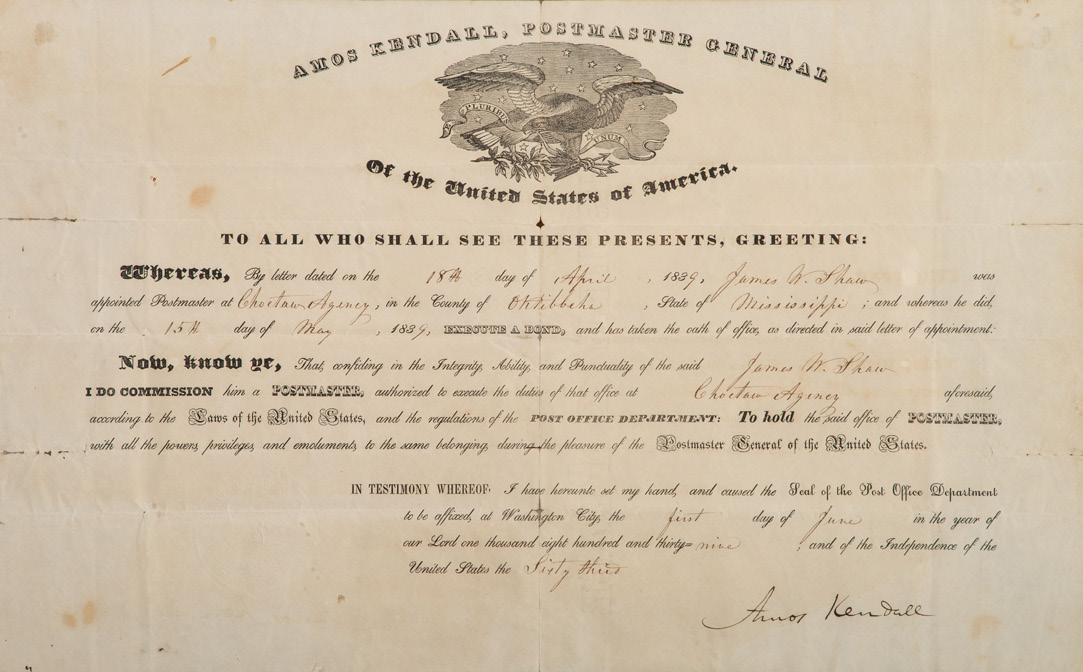 AMOS KENDALL, POSTMASTER GENERAL
E PLURIBUS UNUM
Of the United States of America.
TO ALL WHO SHALL SEE THESE PRESENTS, GREETING:
Whereas, By letter dated on the 18th day of April, 1839, James W. Shaw was
appointed Postmaster at Choctaw Agency, in the County of Oktibbeha, State of Mississippi; and whereas he did,
on the 15th day of May, 1839, EXECUTE A BOND, and has taken the oath of office, as directed in said letter of appointment:
Now, know ye, That, confiding in the Integrity, Ability, and Punctuality of the said James W. Shaw
I DO COMMISSION him a POSTMASTER, authorized to execute the duties of that office at Choctaw Agency aforesaid,
according to the Laws of the United States, and the regulations of the POST OFFICE DEPARTMENT: To hold the said office of POSTMASTER,
with all the powers, privileges, and emoluments, to the same belonging, during the pleasure of the Postmaster General of the United States.
IN TESTIMONY WHEREOF: I have hereunto set my hand, and caused the Seal of the Post Office Department
to be affixed, at Washington City, the first day of June in the year of
our Lord one thousand eight hundred and thirty=nine; and of the Independence of the
United States the Sixty third
Amos Kendall